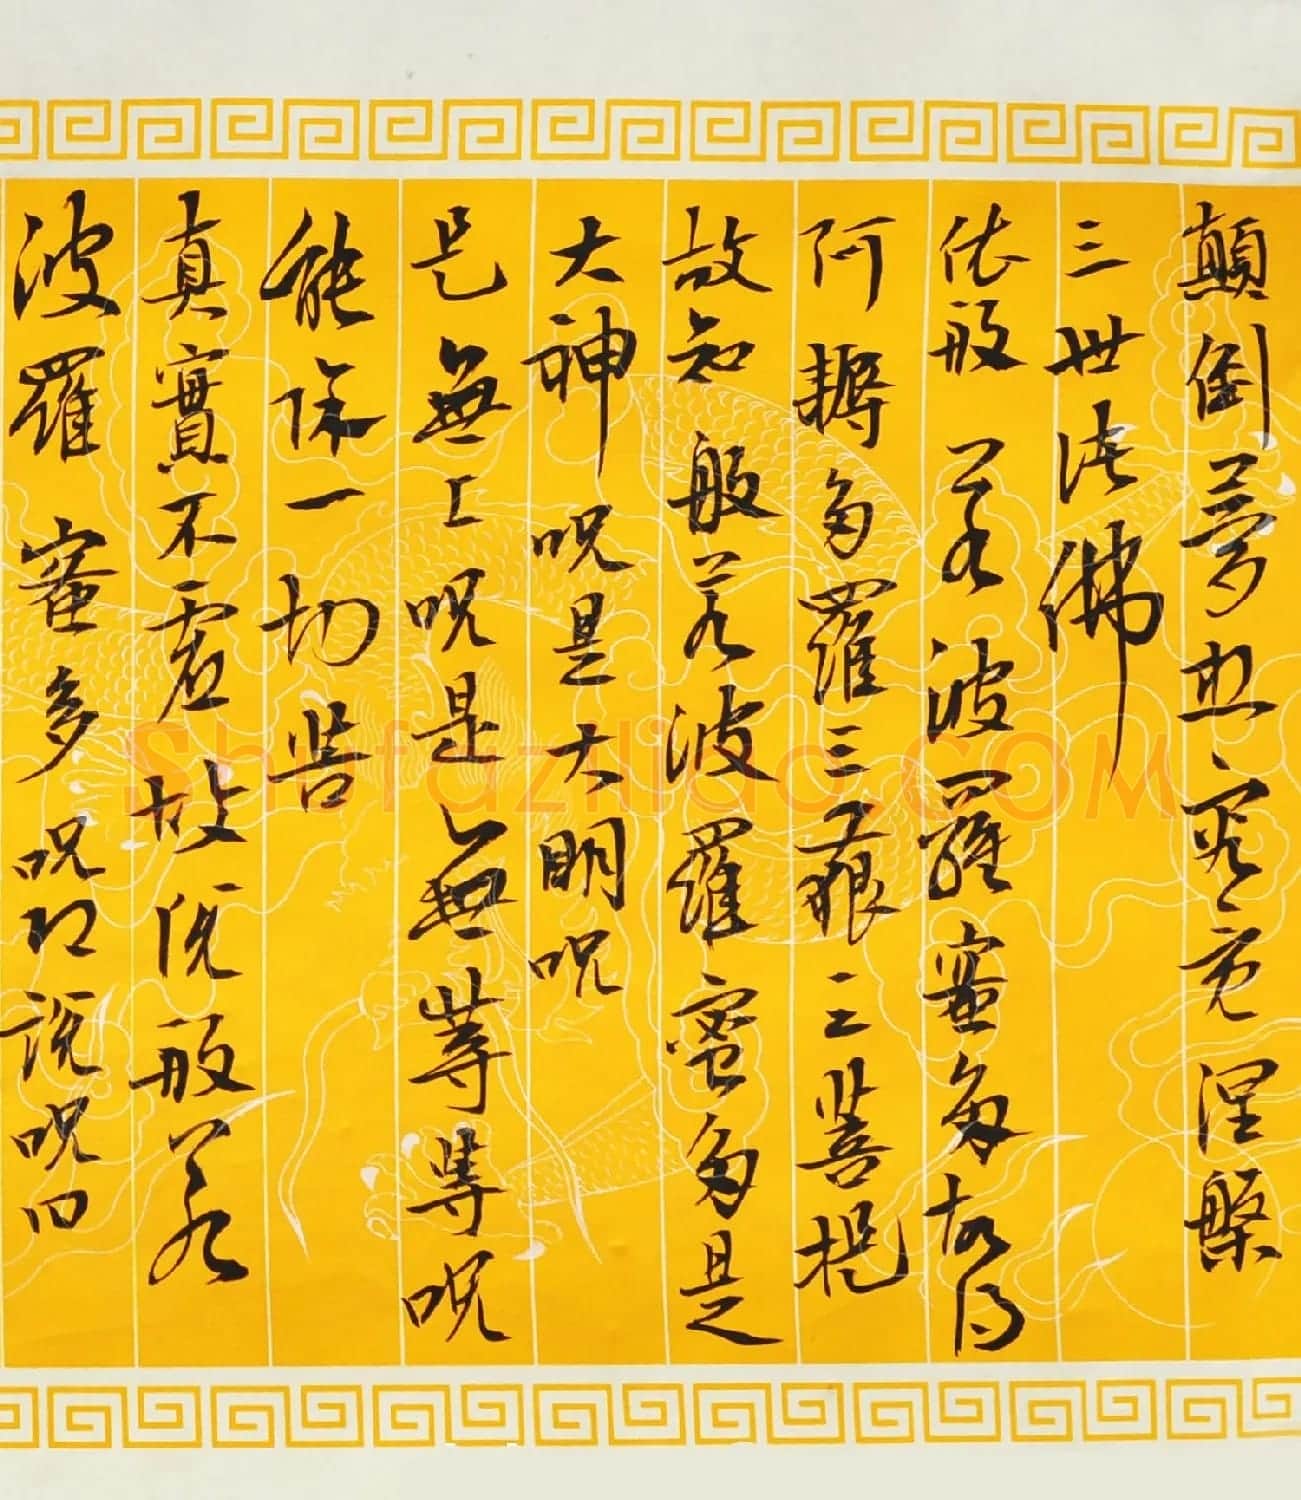 顛倒夢想究竟涅槃
三世諸佛
依般若波羅蜜多故得
阿耨多羅三藐三菩提
故知般若波羅蜜多是
大神呪是大明呪
是無上呪是無等等呪
能除一切苦
真實不虛故說般若
波羅蜜多呪即說呪曰
Shufaziliao.com